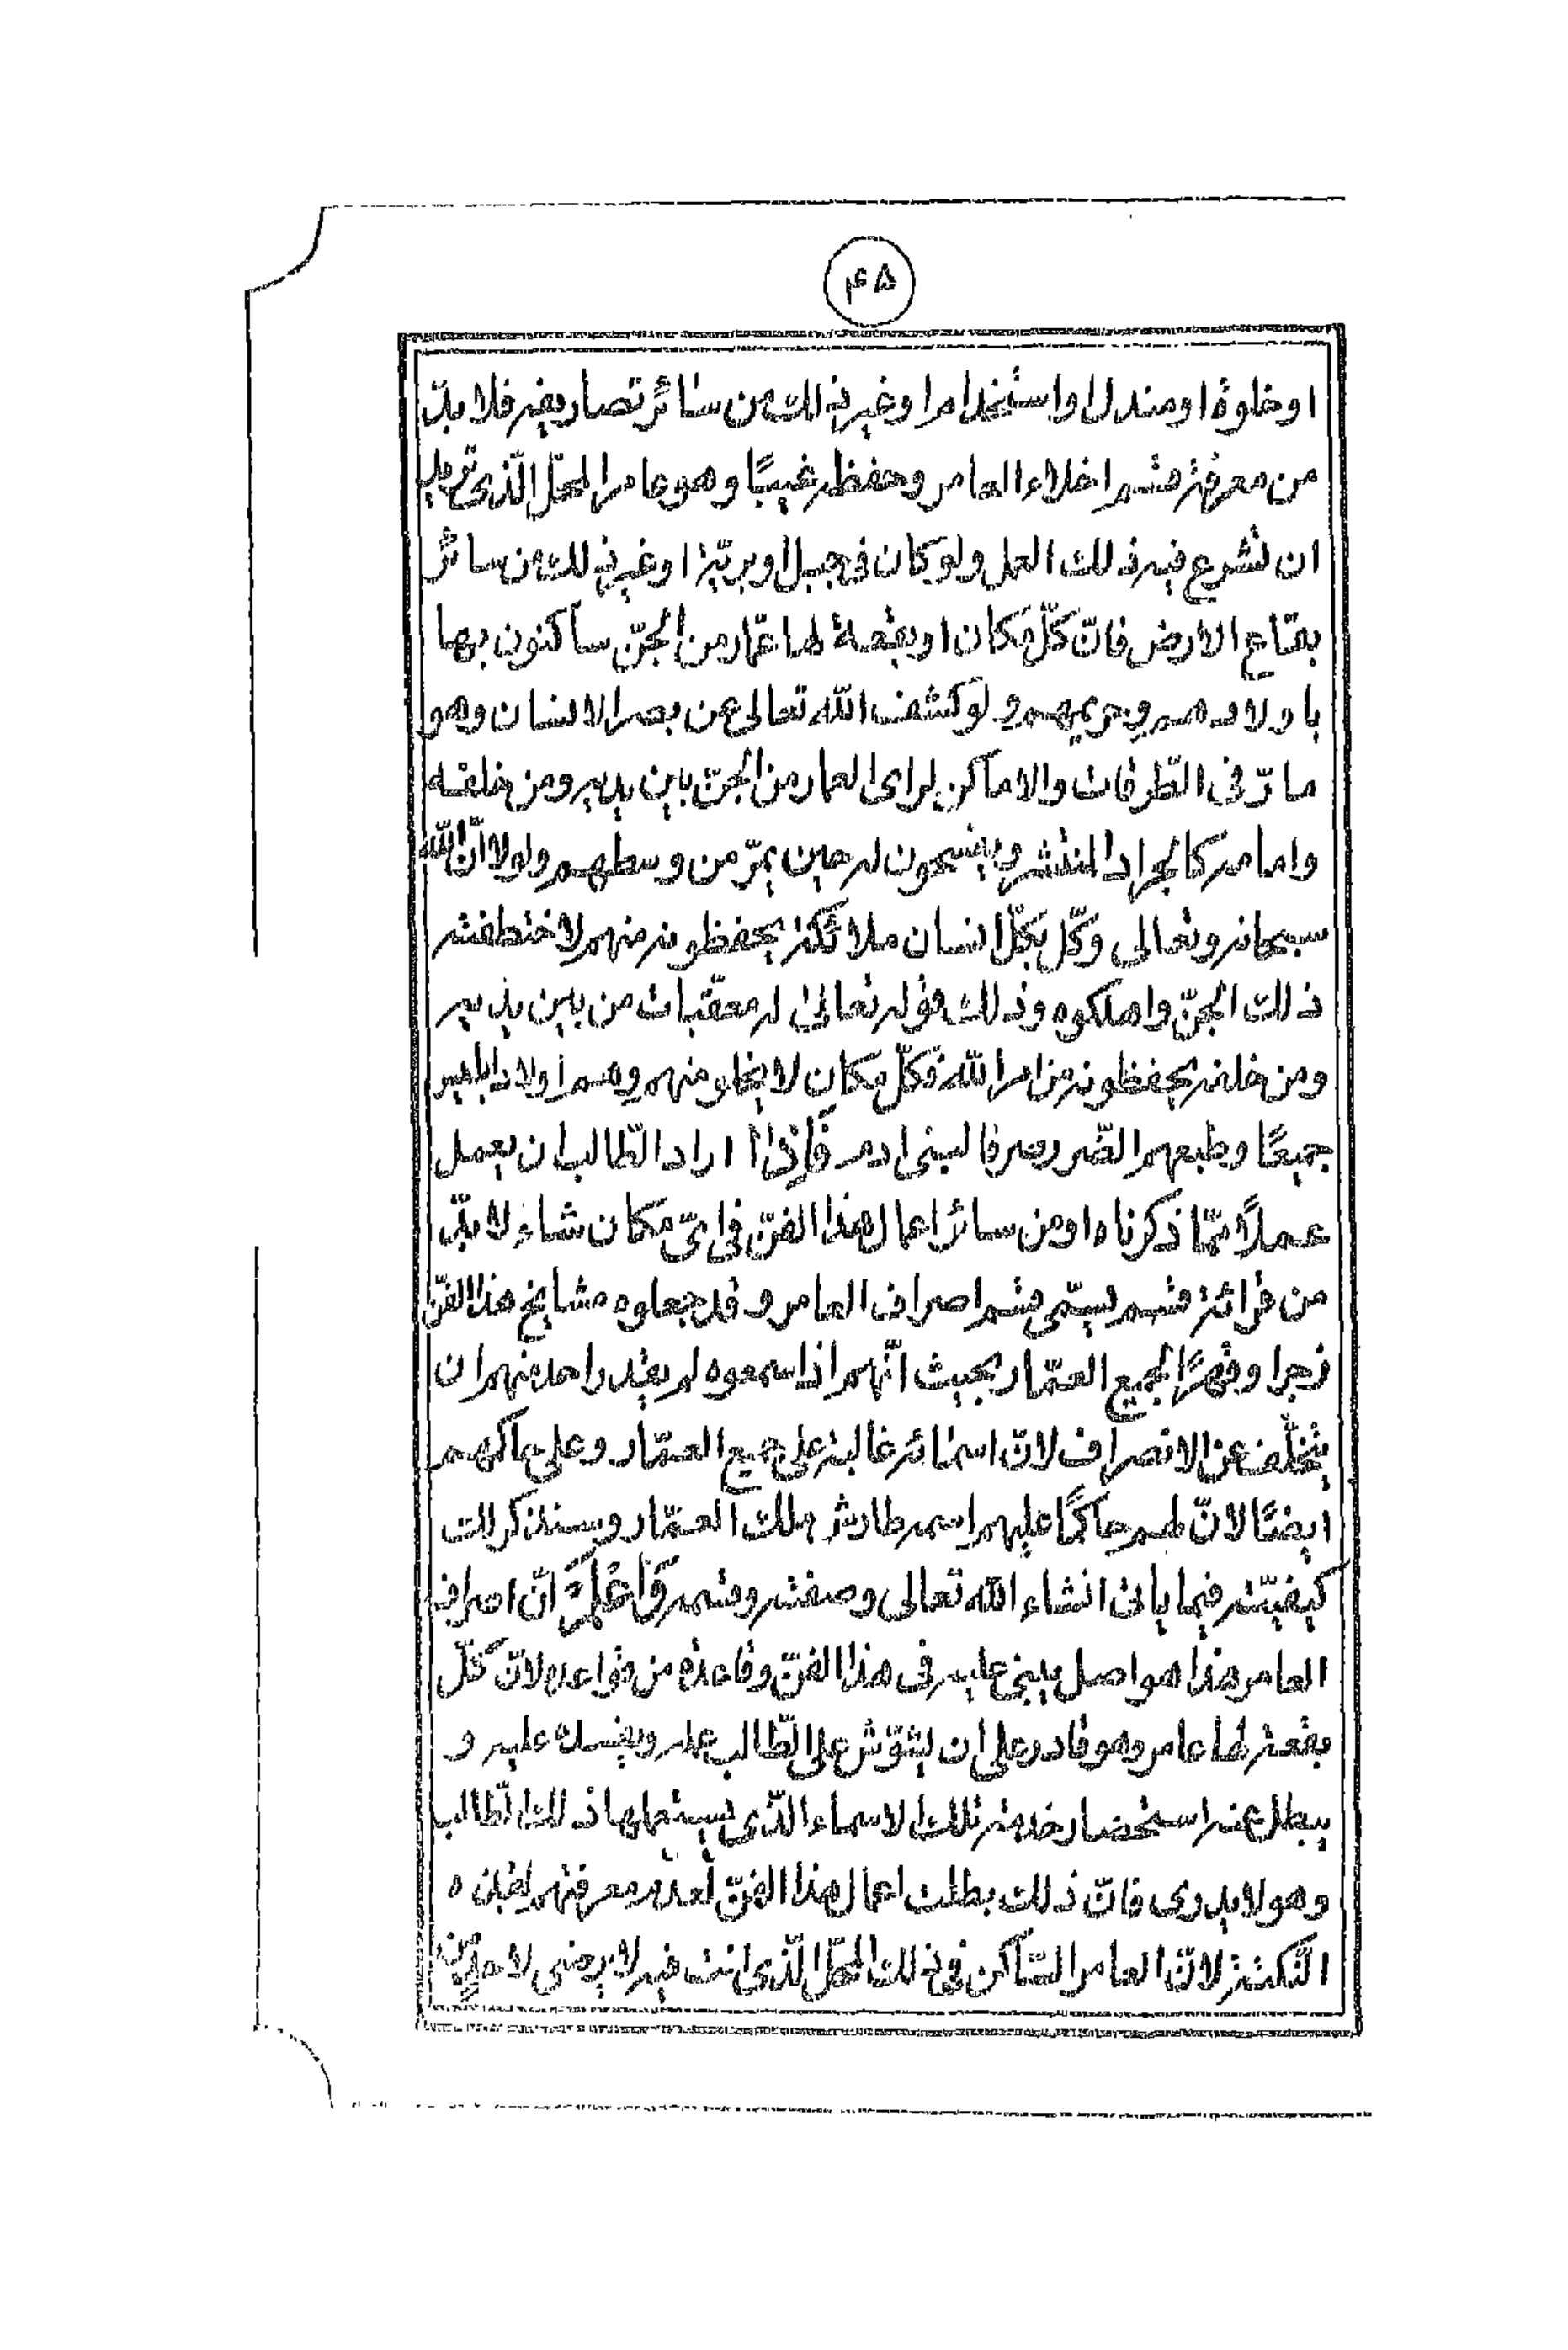 ۴۵
او خلوة او مندل او استخدام او غير ذالك من سائر تصاريفه فلا بدّ
من معرفة قسم اخلاء العامر وحفظه غيبًا وهو عامر المحلّ الّذى تريد
ان تشرع فيه ذلك العمل ولو كان فى جبل او بريّة او غير ذلك من سائر
بقاع الارض فانّ كلّ مكان او بقعة لها عمّار من الجنّ ساكنون بها
باولادهم وحريمهم ولو كشف الله تعالى عن بصر الانسان وهو
مارّ فى الطّرقات والاماكن لراى العمار من الجنّ بين يديه ومن خلفه
وامامه كالجراد المنتشر ويفسحون له حين يمرّ من وسطهم ولولا انّ الله
سبحانه وتعالى وكّل بكلّ انسان ملائكة يحفظونه منهم لاختطفته
ذلك الجنّ واهلكوه وذلك قوله تعالى له معقّبات من بين يديه
ومن خلفه يحفظونه من امر الله فكلّ مكان لا يخلو منهم وهم اولاد ابليس
جميعًا وطبعهم الضّرر صرفا لبنى ادم فَاِذٰا اراد الطّالب ان يعمل
عملاً ممّا ذكرناه او من سائر اعمال هذا الفنّ فى اىّ مكان شاء لا بدّ
من قرائة قسم يسمّى قسم اصراف العامر وقد جعلوه مشايخ هذا الفنّ
زجرا وقهرًا لجميع العمّار بحيث انّهم اذا سمعوه لم يقدر احد منهم ان
يتخلّف عن الانصراف لانّ اسمائه غالبة على جميع العمّار وعلى حاكمهم
ايضًا لانّ لهم حاكمًا عليهم اسمه طارش ملك العمّار وسنذكر لك
كيفيّته فيما ياتى انشاء الله تعالى وصفته وقسمه فَاعْلَمْ انّ اصراف
العامر هذا هو اصل يبنى عليه فى هذا الفنّ وقاعدة من قواعده لانّ كلّ
بقعة لها عامر وهو قادر على ان يشوّش على الطّالب عمله ويفسك عليه و
يبطل عنه استحضار خدمة تلك الاسماء الّذى يستعملها ذلك الطّالب
وهو لا يدرى فانّ ذلك بطلت اعمال هذا الفنّ لعدم معرفتهم لهذه
النّكتة لانّ العامر السّاكن فى ذلك المحلّ الّذى انت فيه لا يرضى لاحد من